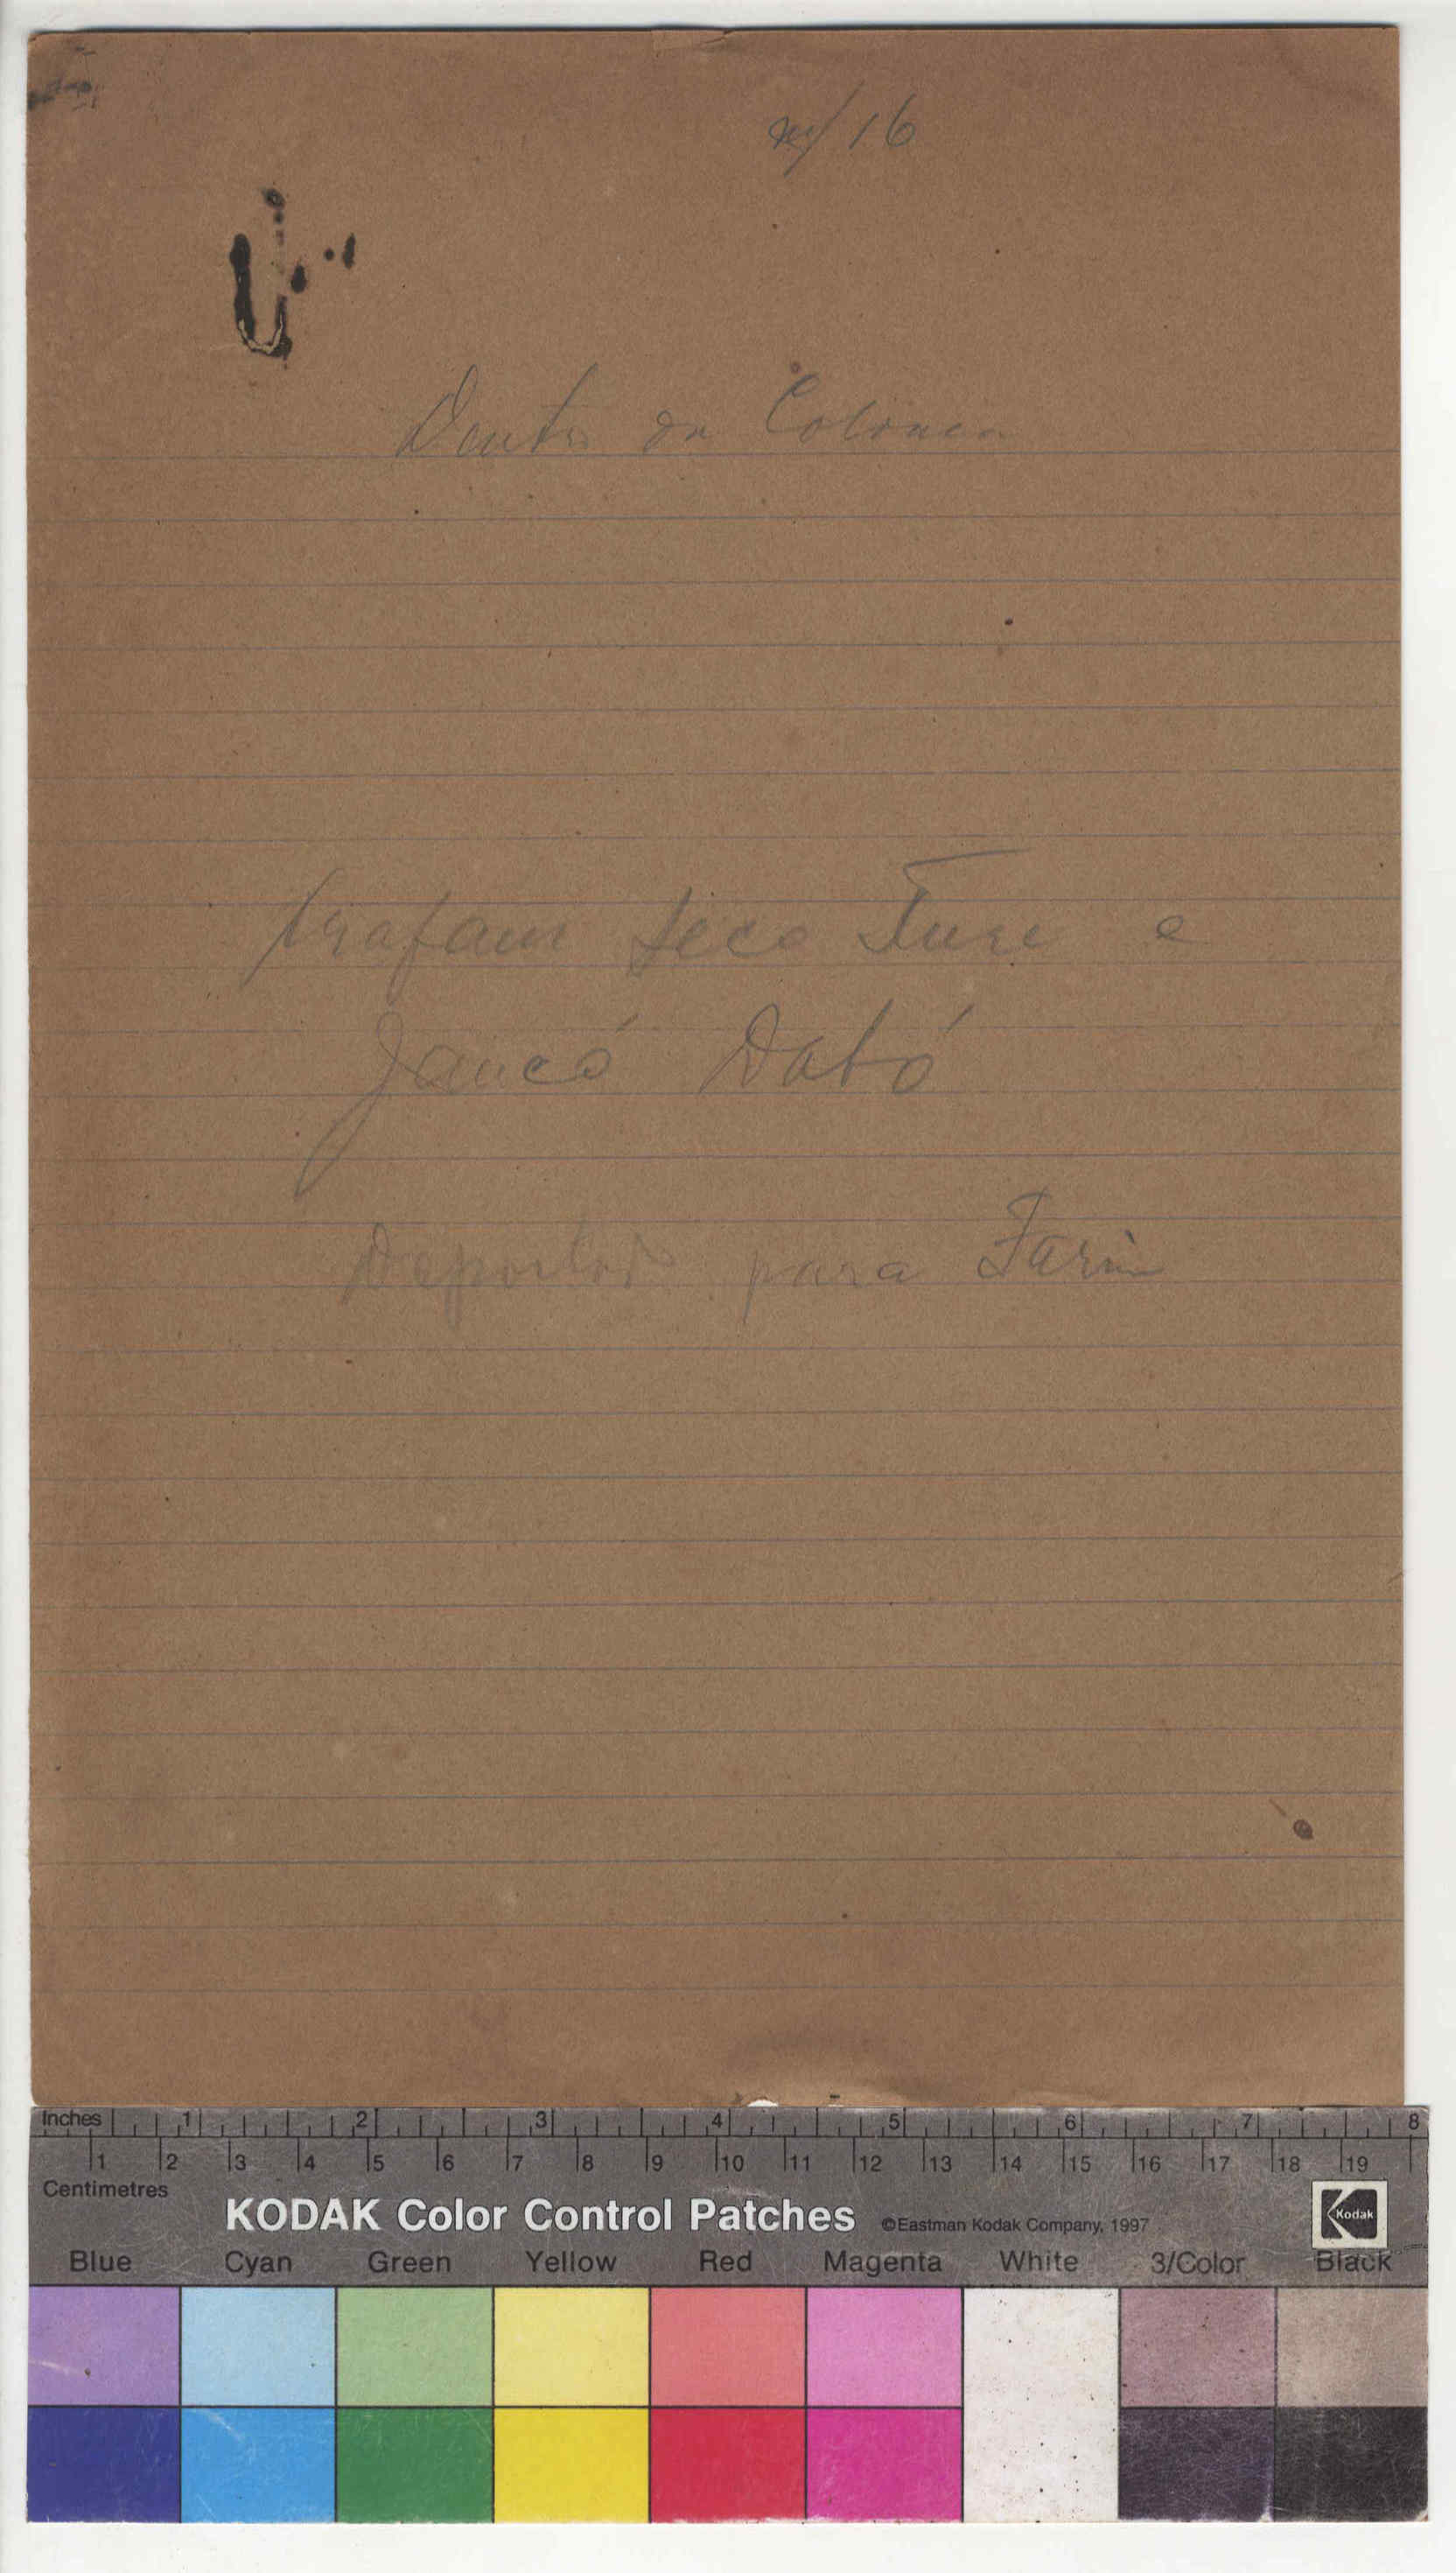 nº/16
Dentro da Colonia
Seco Ture e
Jancó Dabó
para Farim
Inches 1 2 3 4 5 6 7 8
1 2 3 4 5 6 7 8 9 10 11 12 13 14 15 16 17 18 19
Centimetres
KODAK Color Control Patches ©Eastman Kodak Company, 1997 Kodak
Blue Cyan Green Yellow Red Magenta White 3/Color Black